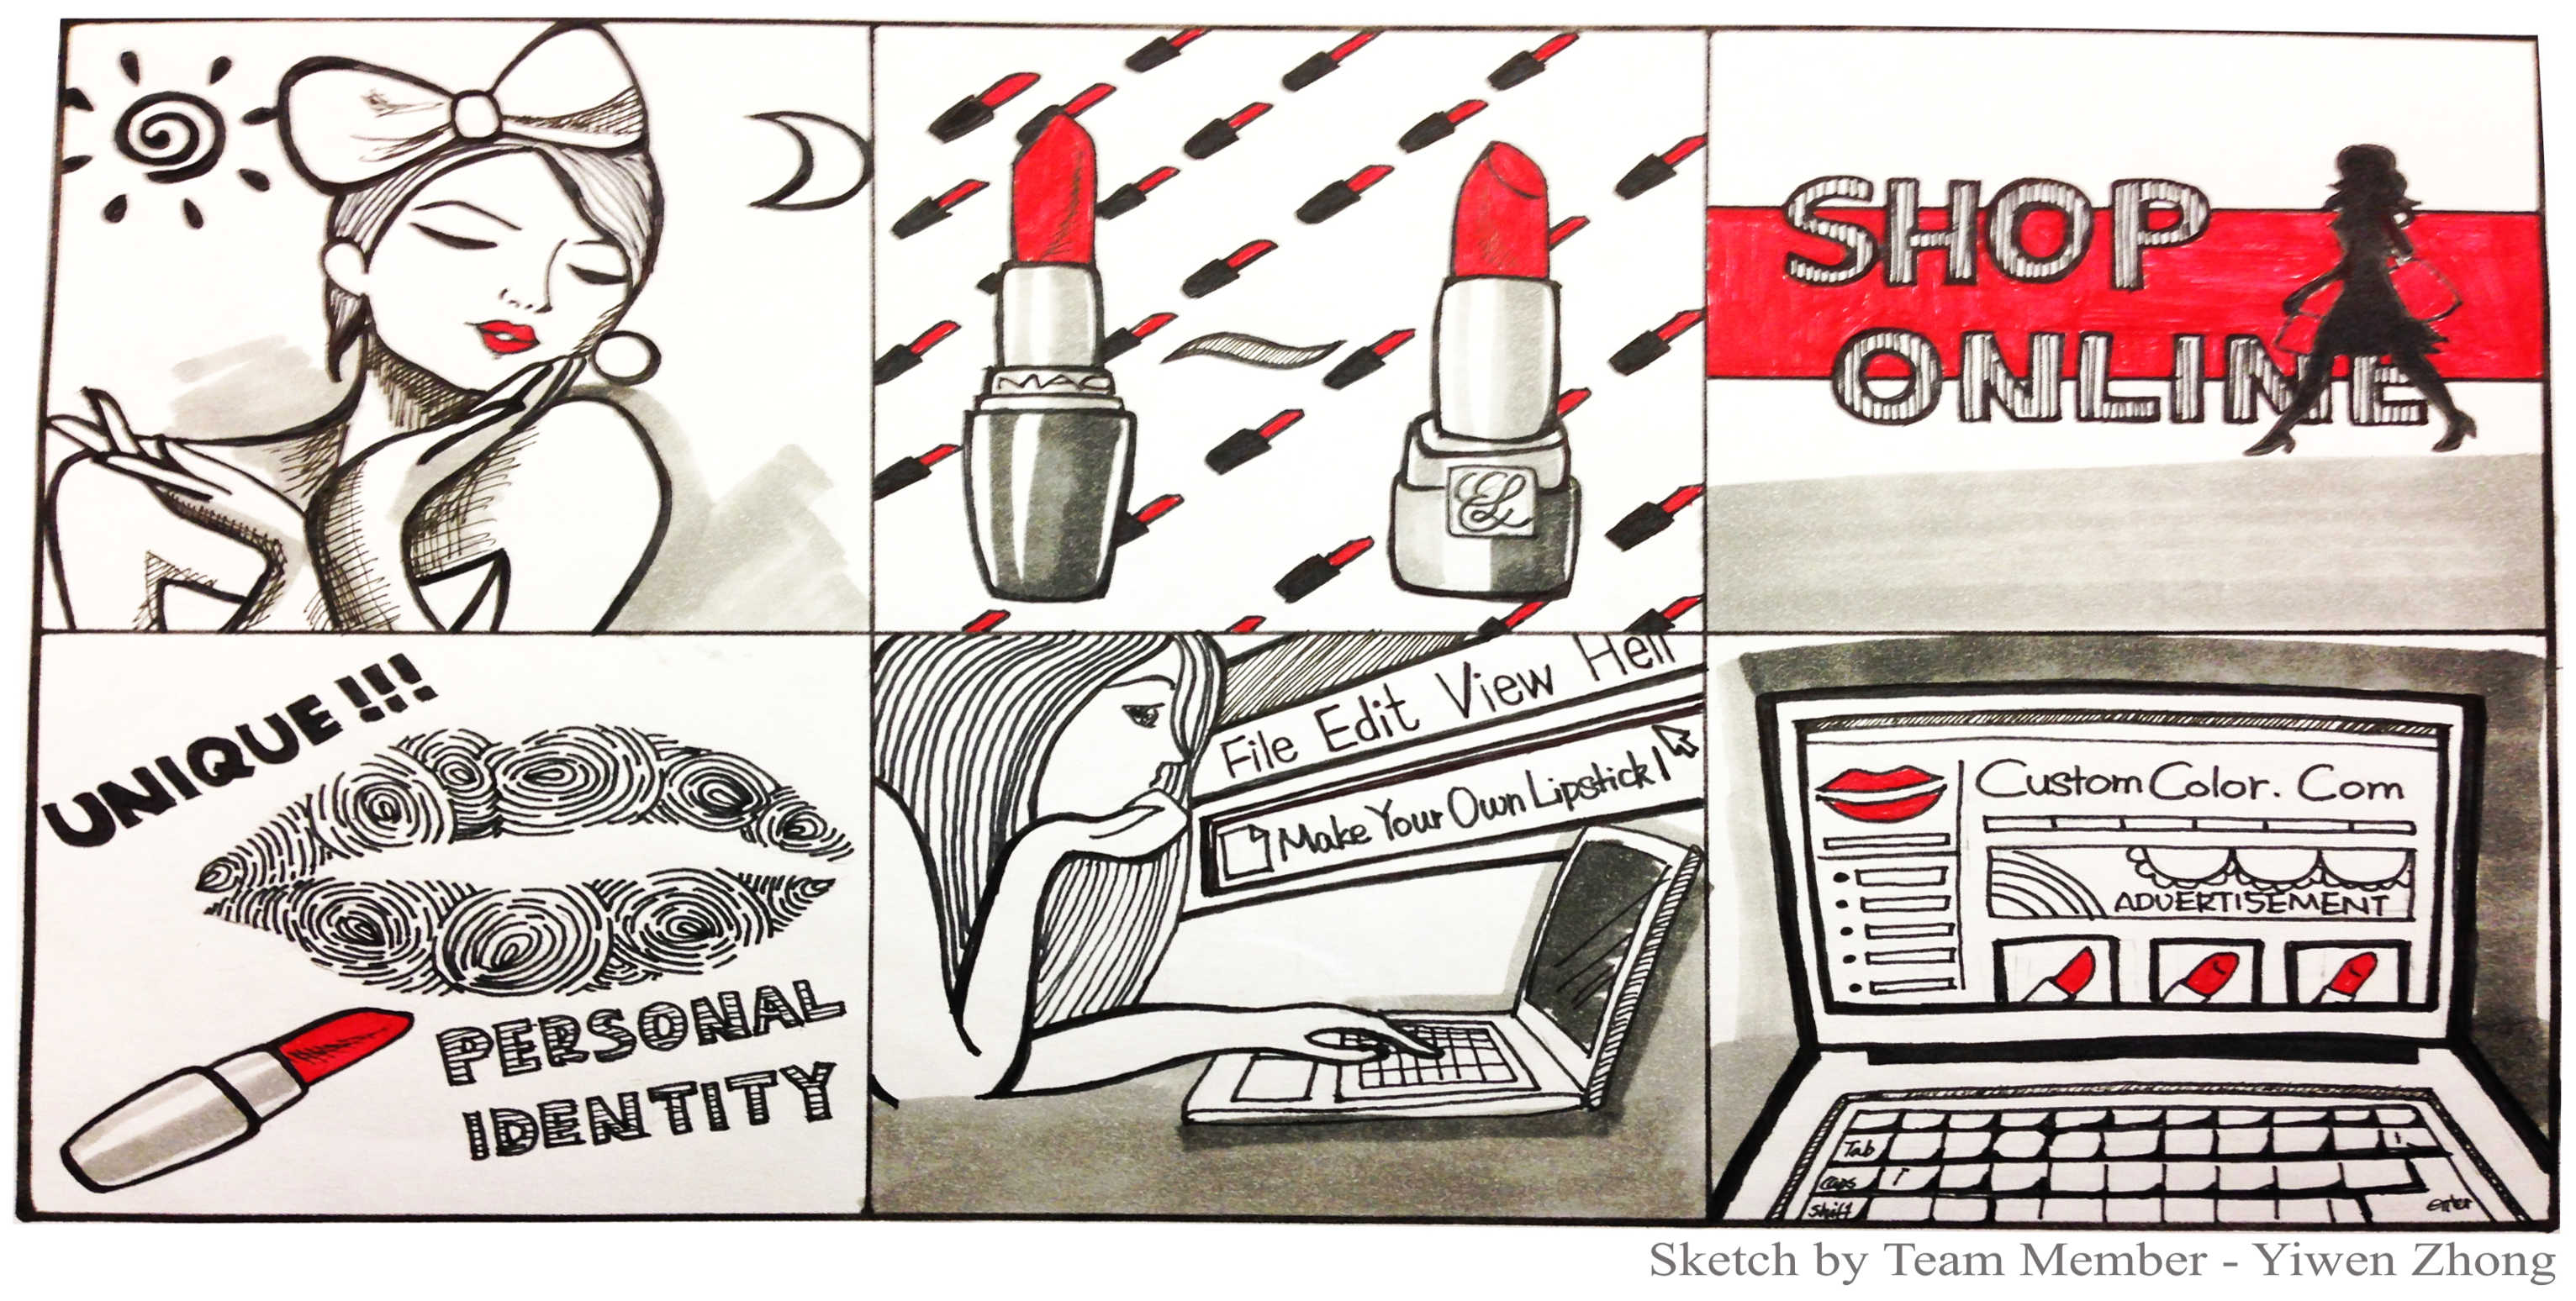 MAC
EL
SHOP
ONLINE
UNIQUE!!!
PERSONAL
IDENTITY
File Edit View Hell
Make Your Own Lipstick!
CustomColor. Com
ADVERTISEMENT
Tab
Caps
Shift
enter
Sketch by Team Member - Yiwen Zhong